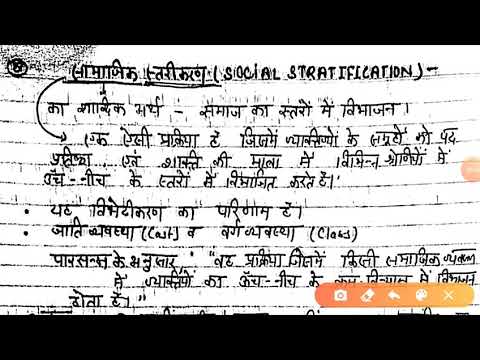 सामाजिक स्तरीकरण (SOCIAL STRATIFICATION) -
का शाब्दिक अर्थ - समाज का स्तरों में विभाजन।
एक ऐसी प्रक्रिया है जिसमें व्यक्तियों के समूहों को पद
प्रतिष्ठा एवं शक्ति की मात्रा में विभिन्न श्रेणियों में
ऊँच-नीच के स्तरों में विभाजित करते है।
• यह विभेदीकरण का परिणाम है।
• जाति व्यवस्था (Cast) व वर्ग व्यवस्था (Class)
पारसन्स के अनुसार : "वह प्रक्रिया जिसमें किसी समाजिक व्यवस्था
में व्यक्तियों का ऊँच-नीच के क्रम-विन्यास में विभाजन
होता है।"